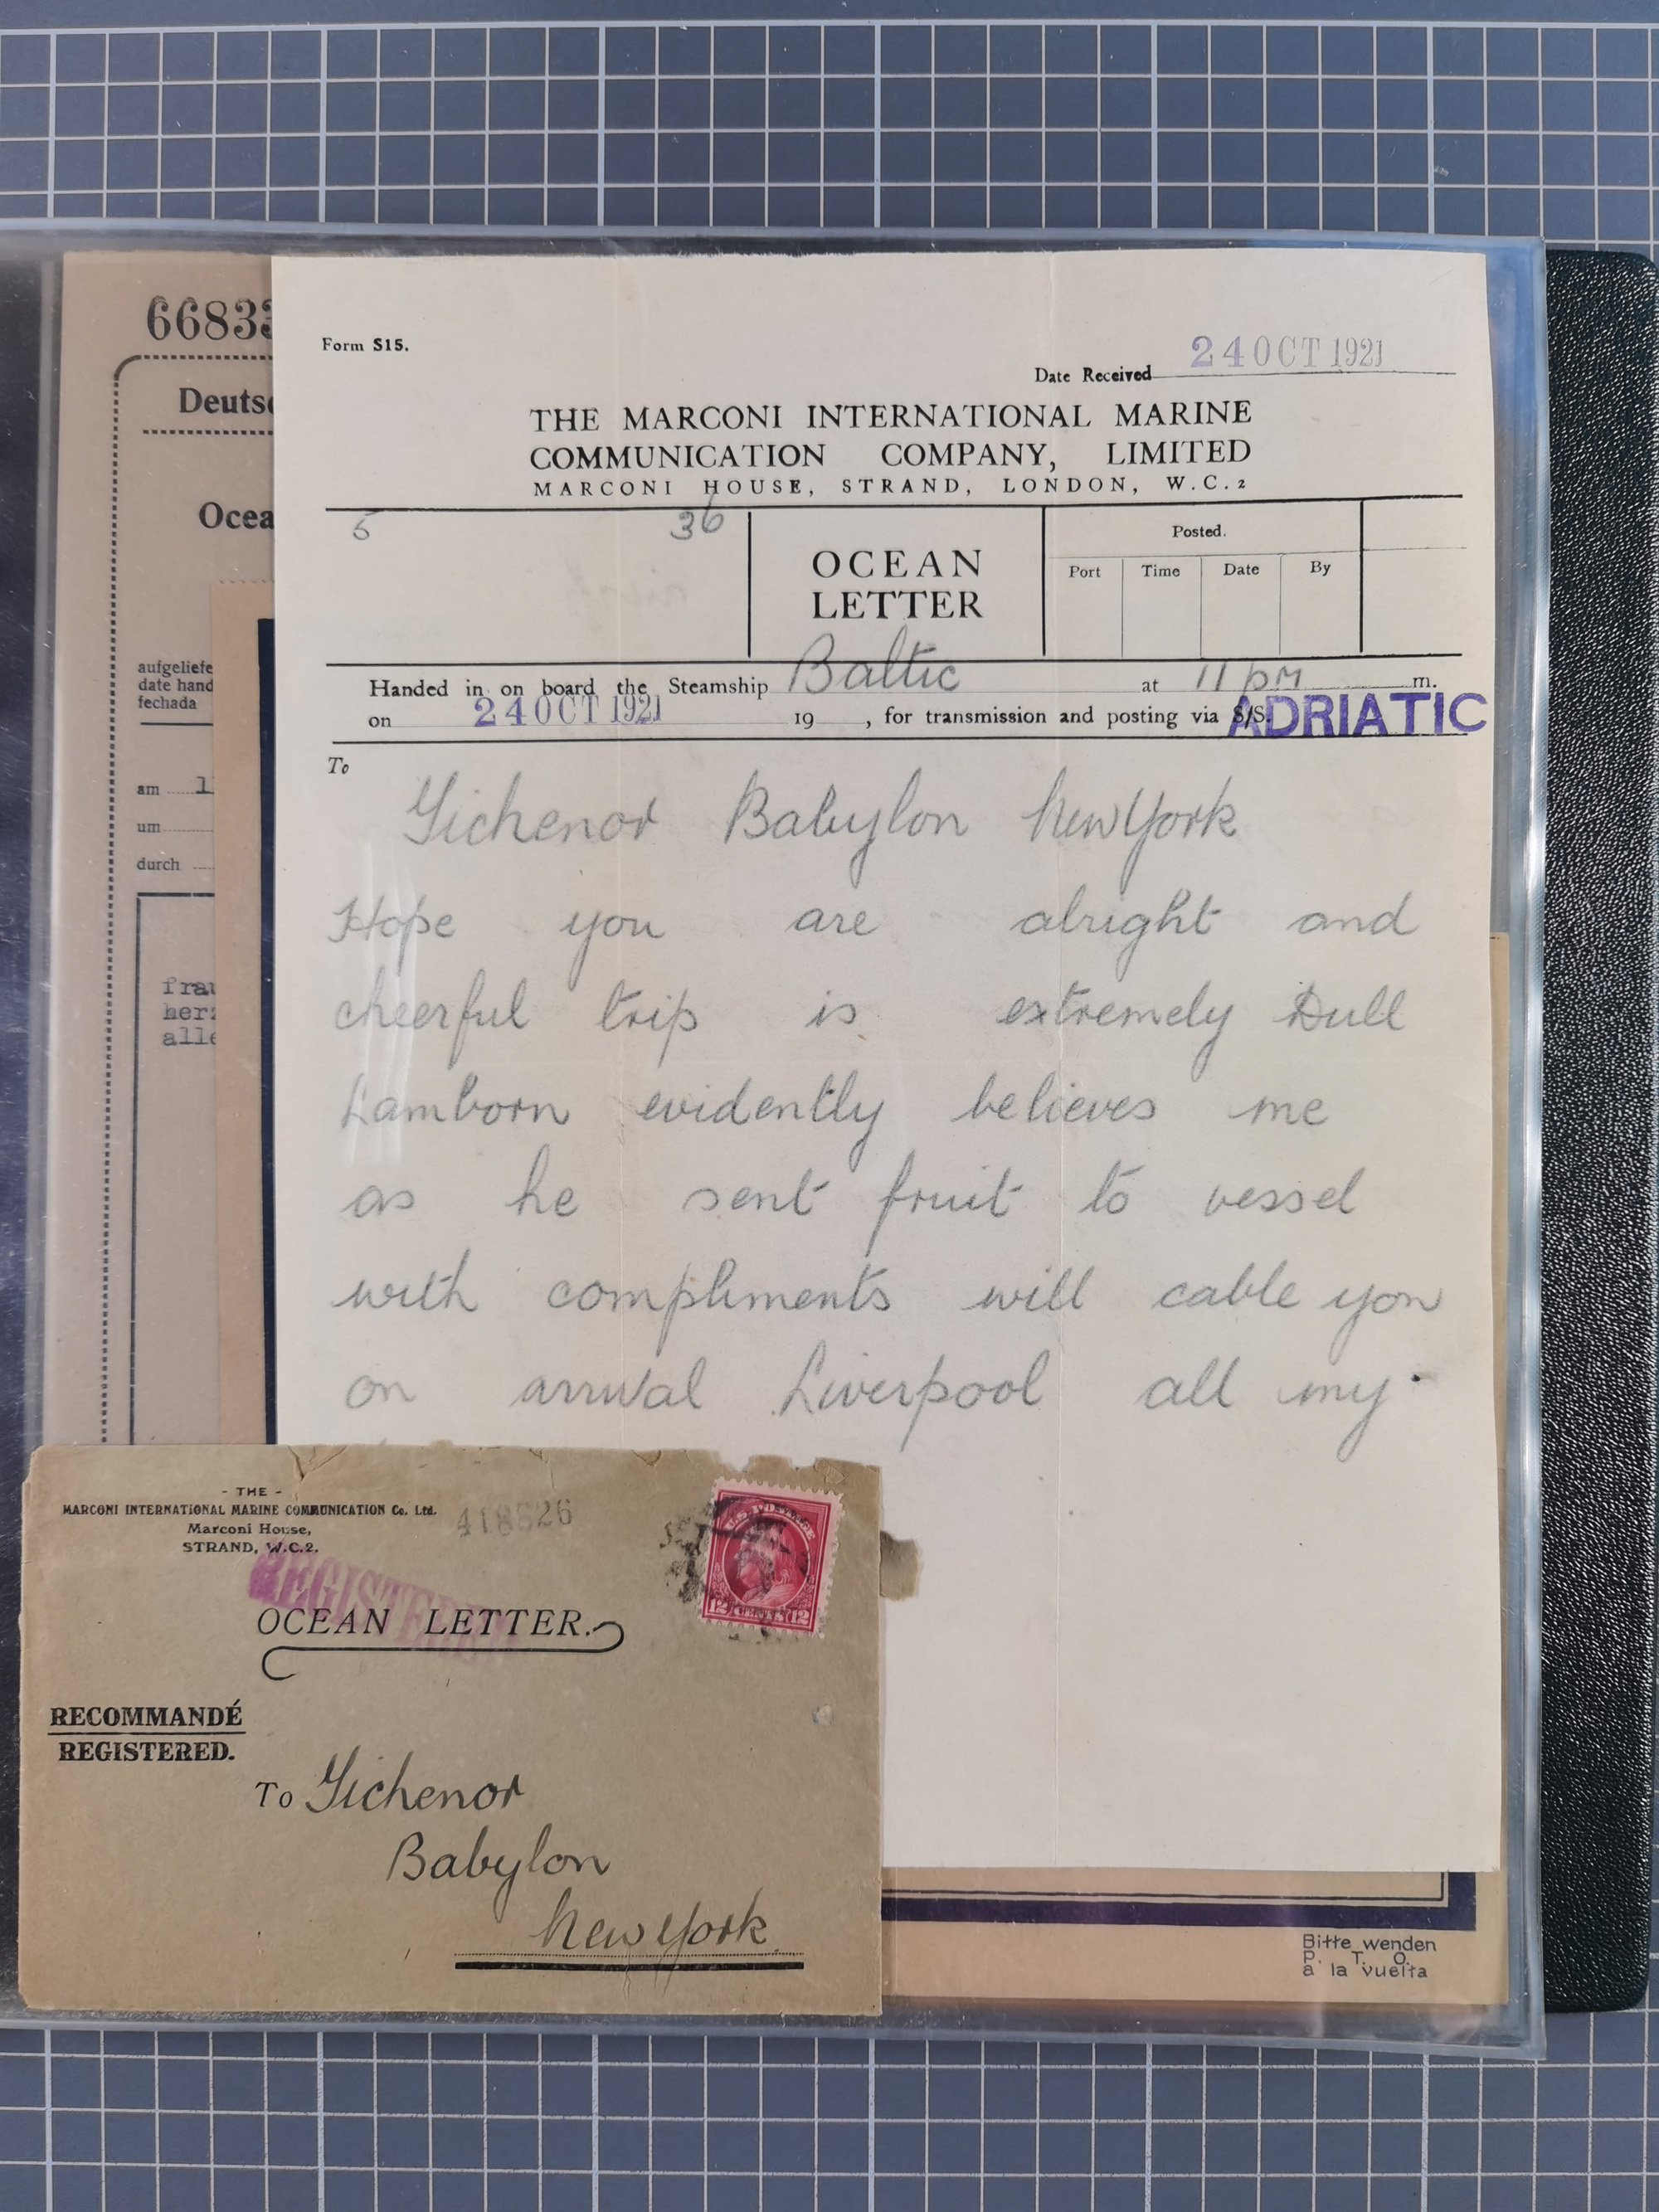 6683
Deuts
Ocea
aufgeliefe
date hand
fechada
am 1
um
durch
frau
herz
alle
Form S15.
Date Received 24 OCT 1921
THE MARCONI INTERNATIONAL MARINE
COMMUNICATION COMPANY, LIMITED
MARCONI HOUSE, STRAND, LONDON, W.C.2
5 36
OCEAN
LETTER
Posted.
Port Time Date By
Handed in on board the Steamship Baltic at 11 pm m.
on 24 OCT 1921 19 , for transmission and posting via S/S. ADRIATIC
To
Tichenor Babylon New York
Hope you are alright and
cheerful trip is extremely Dull
Lamborn evidently believes me
as he sent fruit to vessel
with compliments will cable you
on arrival Liverpool all my
- THE -
MARCONI INTERNATIONAL MARINE COMMUNICATION Co. Ltd.
Marconi House,
STRAND, W.C.2.
418626
REGISTERED
U.S. POSTAGE
12 CENTS 12
OCEAN LETTER.
RECOMMANDÉ
REGISTERED.
To Tichenor
Babylon
New York
Bitte wenden
P. T. O.
a la vuelta